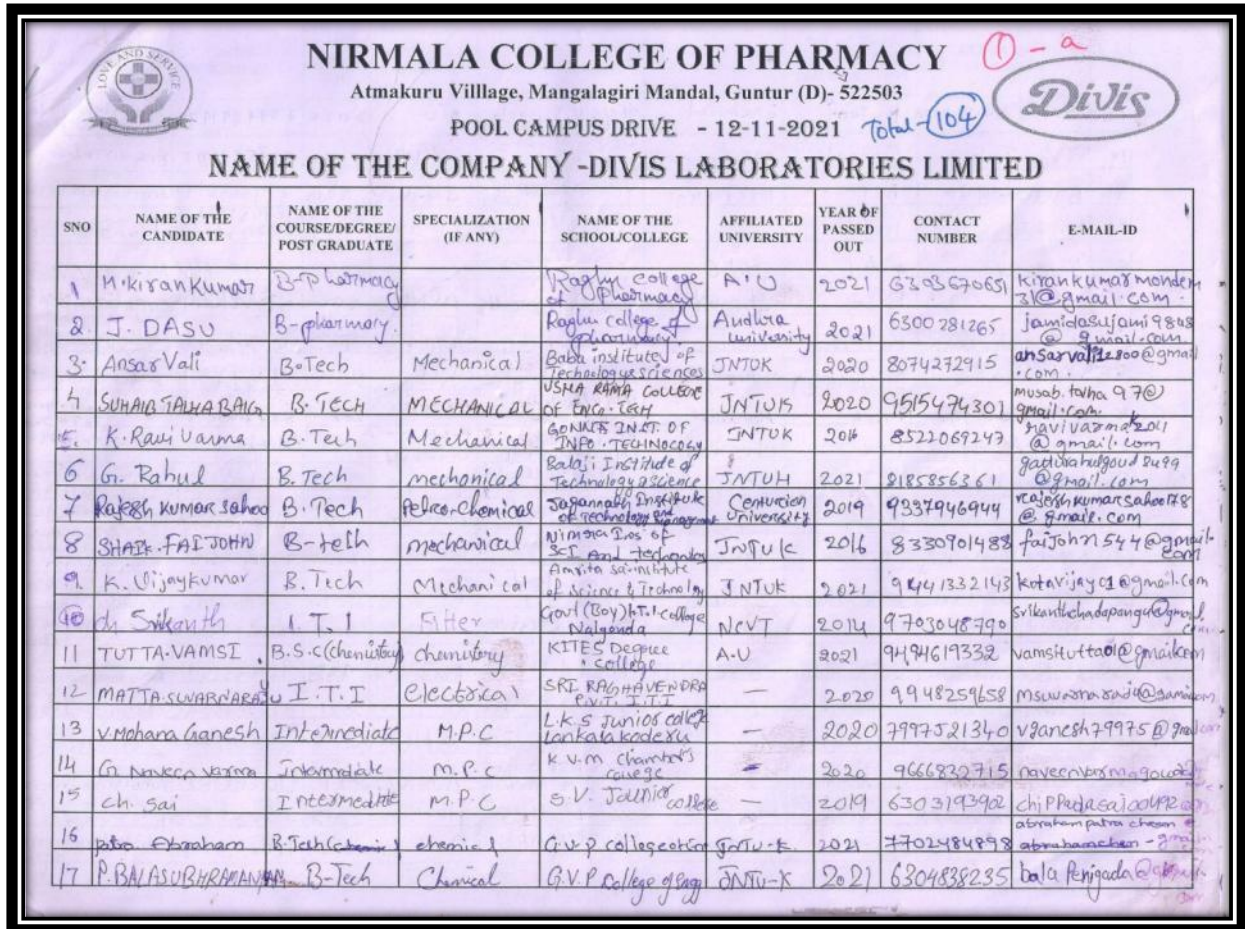 LOVE AND SERVICE
NIRMALA COLLEGE OF PHARMACY
1 - a
Atmakuru Villlage, Mangalagiri Mandal, Guntur (D)- 522503
Divis
POOL CAMPUS DRIVE - 12-11-2021 Total - 104
NAME OF THE COMPANY -DIVIS LABORATORIES LIMITED
SNO NAME OF THE CANDIDATE NAME OF THE COURSE/DEGREE/ POST GRADUATE SPECIALIZATION (IF ANY) NAME OF THE SCHOOL/COLLEGE AFFILIATED UNIVERSITY YEAR OF PASSED OUT CONTACT NUMBER E-MAIL-ID
1 M.kiran Kumar B-Pharmacy Raghu college of pharmacy A.U 2021 6303670651 kirankumarmondem31@gmail.com.
2. J. DASU B-pharmacy. Raghu college of pharmacy. Andhra university 2021 6300281265 jamidasujami9848@gmail.com.
3. Ansar Vali B.Tech Mechanical Baba institute of Technology & sciences JNTUK 2020 8074272915 ansarvali12800@gmail.com.
4 SUHAIB TALHA BAIG B. TECH MECHANICAL USHA RAMA COLLEGE OF ENGG. TECH JNTUK 2020 9515474301 musab.talha97@gmail.com.
5. K. Ravi Varma B. Tech Mechanical INST. OF INFO. TECHNOLOGY JNTUK 2016 8522069247 ravivarmak2011@gmail.com
6 G. Rahul B. Tech mechanical Balaji Institute of Technology & science JNTUH 2021 8185856361 @gmail.com
7 Rajesh Kumar Sahoo B. Tech Petro-Chemical Jagannath Institute of Technology and Management Centurion University 2019 9337946944 rajeshkumarsahoo178@gmail.com
8 SHAIK. FAI JOHN B-tech mechanical Nimra Ins of SCI And technology JNTUK 2016 8330901488 faijohn544@gmail.com
9. K. Vijaykumar B. Tech Mechanical Amrita sai institute of science & Technology JNTUK 2021 9441332143 kotavijay01@gmail.com
10 ch Srikanth I. T. I Fitter Govt (Boy) I.T.I college Nalgonda NCVT 2014 9703048790
11 TUTTA.VAMSI B.S.C (chemistory) chemistory KITES Degree college A.U 2021 9494619332
12 MATTA.SUVARNARAJU I.T.I electrical SRI RAGHAVENDRA PVT. I.T.I — 2020 9948259658
13 V.Mohana Ganesh Intermediate M.P.C L.K.S Junior college Lankalakoderu — 2020 7997521340 vganesh79975@gmail.com
14 G. Naveen Varma Intermediate M.P.C K.V.M college - 2020 9666832715
15 ch. Sai Intermediate M.P.C S.V. Jounior college — 2019 6303193902
16 Abraham B.Tech chemical G.V.P college JNTU-K 2021 7702484898
17 P.BALASUBHRAMANYAM B-Tech Chemical G.V.P College of Engg JNTU-K 2021 6304838235